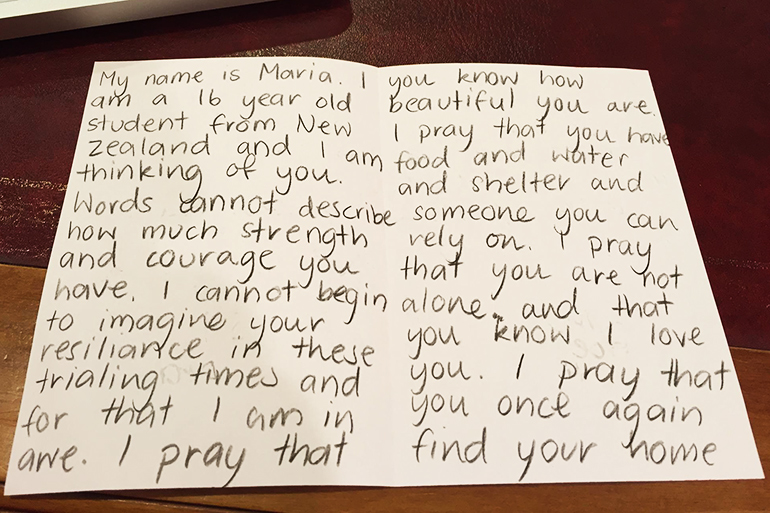 My name is Maria. I
am a 16 year old
student from New
Zealand and I am
thinking of you.
Words cannot describe
how much strength
and courage you
have. I cannot begin
to imagine your
resiliance in these
trialing times and
for that I am in
awe. I pray that
you know how
beautiful you are.
I pray that you have
food and water
and shelter and
someone you can
rely on. I pray
that you are not
alone and that
you know I love
you. I pray that
you once again
find your home